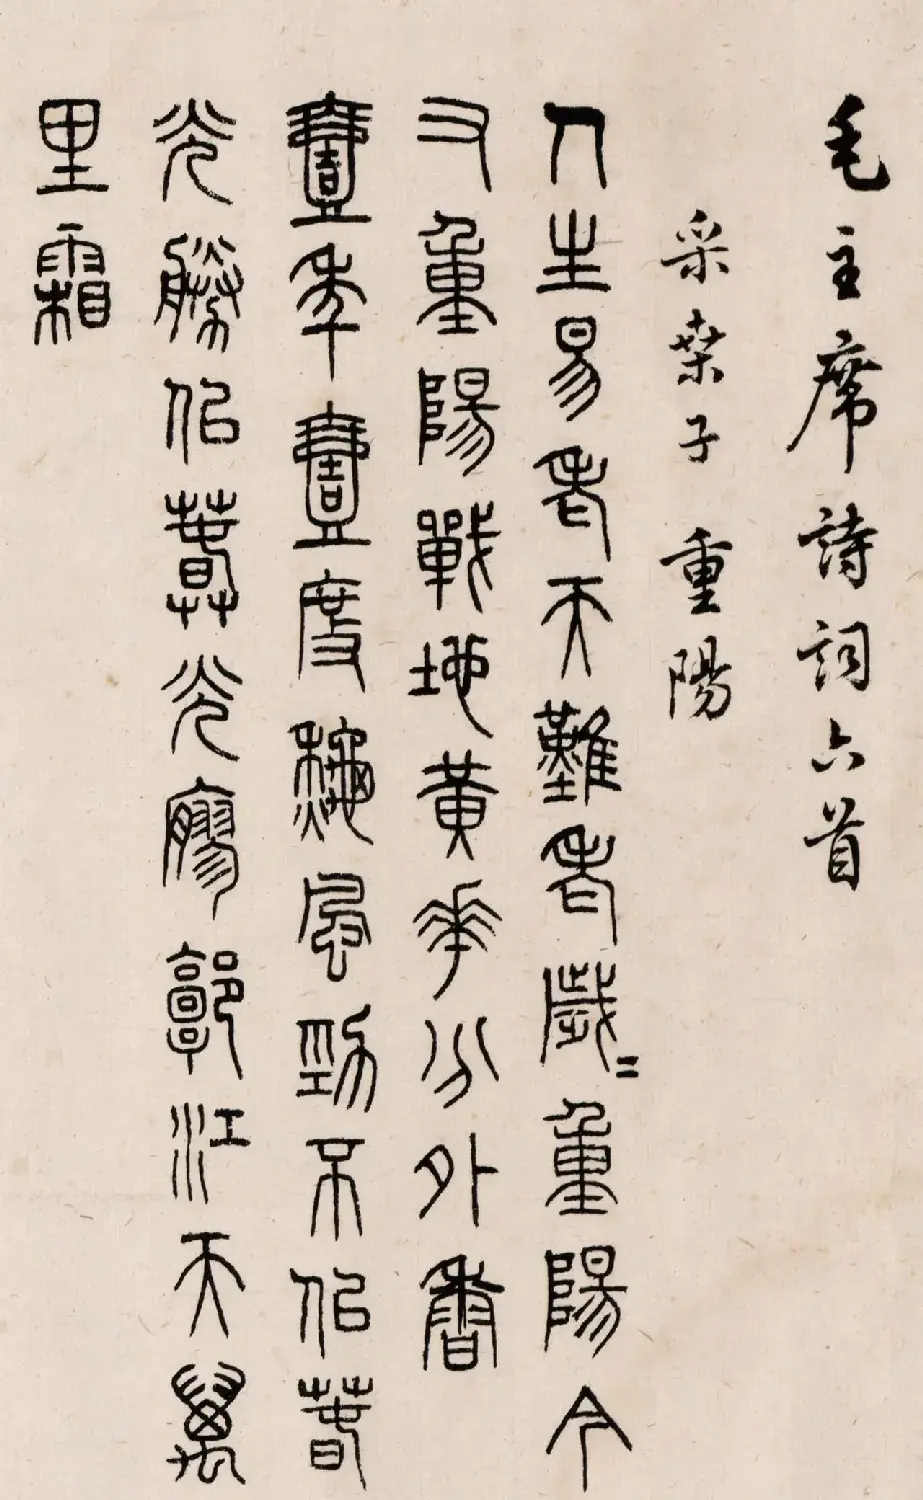 毛主席詩詞六首
采桒子 重陽
人生易老天難老歲〻重陽今
又重陽戰地黃華分外香
壹年壹度秋風勁不似春
光勝似春光廖郭江天萬
里霜